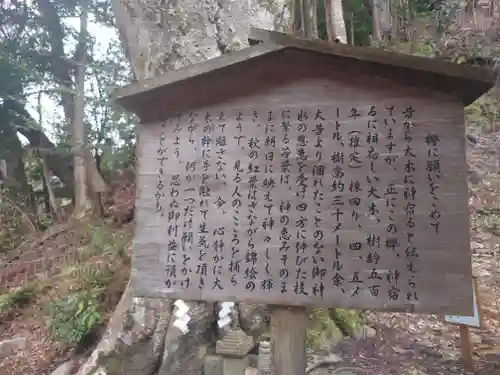 欅に願いをこめて
昔から大木に神宿ると伝えられ
ていますが、正にこの欅、神宿
るに相応しい大木、樹齢五百
年（推定）株回り四、四、五メ
ートル、樹高約三十メートル余、
大昔より涸れたことのない御神
水の恩恵を受け四方に伸びた枝
に繁る若葉は、神の恵みそのま
まに朝日に映えて神々しく輝
き、秋の紅葉はさながら錦絵の
ようで、見る人のこころを捕ら
えて離さない。今、心静かに大
木の幹に手を触れて生気を頂き
ながら、何か一つだけ願いをかけ
てみよう。思わぬ御利益に預か
ることができるから。